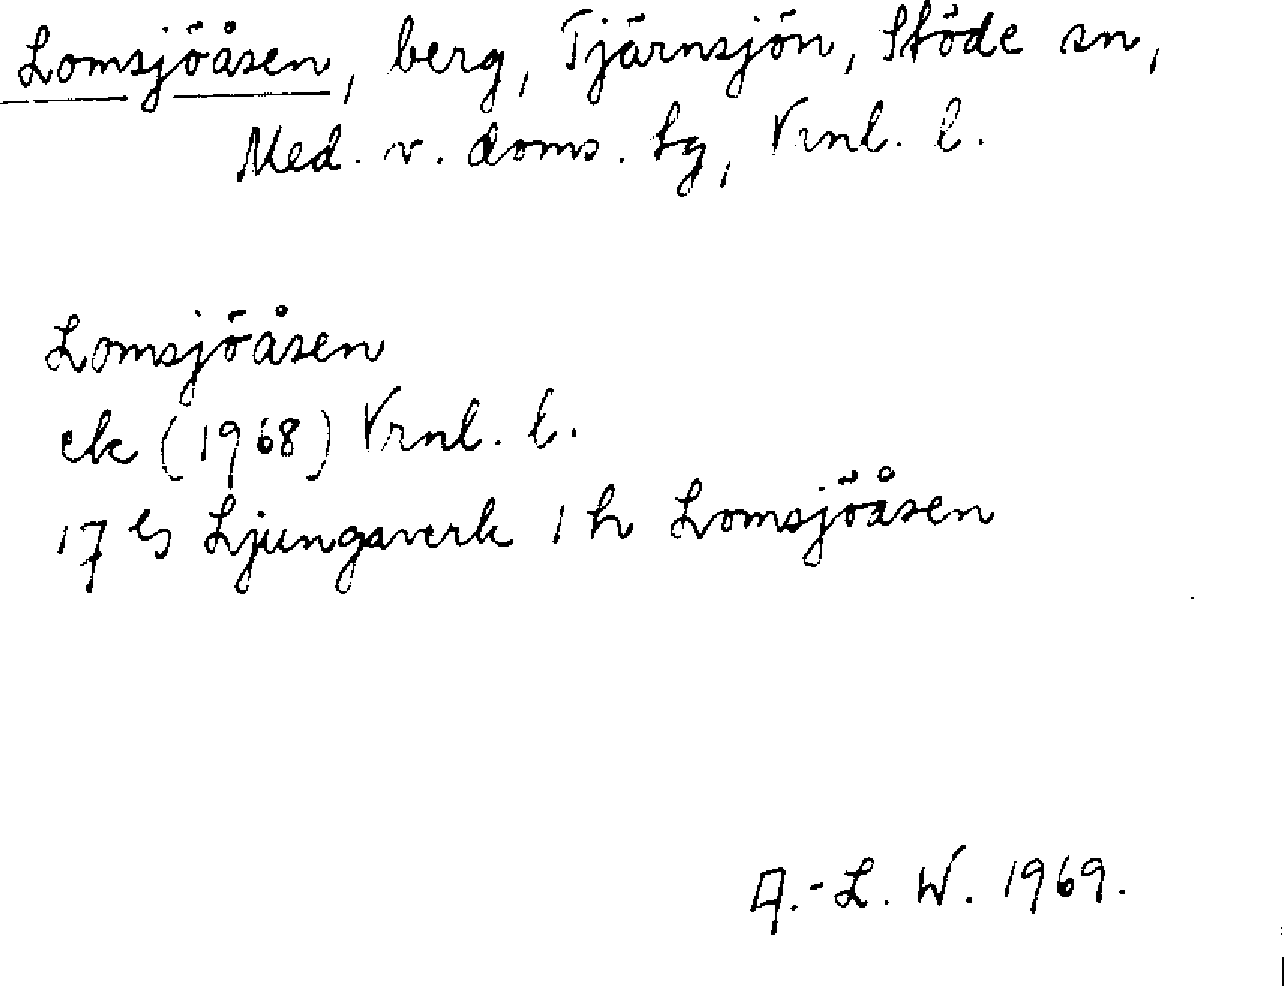 Lomsjöåsen, berg, Tjärnsjön, Stöde sn,
Med. v. doms. hg, Vrnl. l.
Lomsjöåsen
ek (1968) Vrnl. l.
17 Ljungaverk 1 h Lomsjöåsen
A.-L. W. 1969.